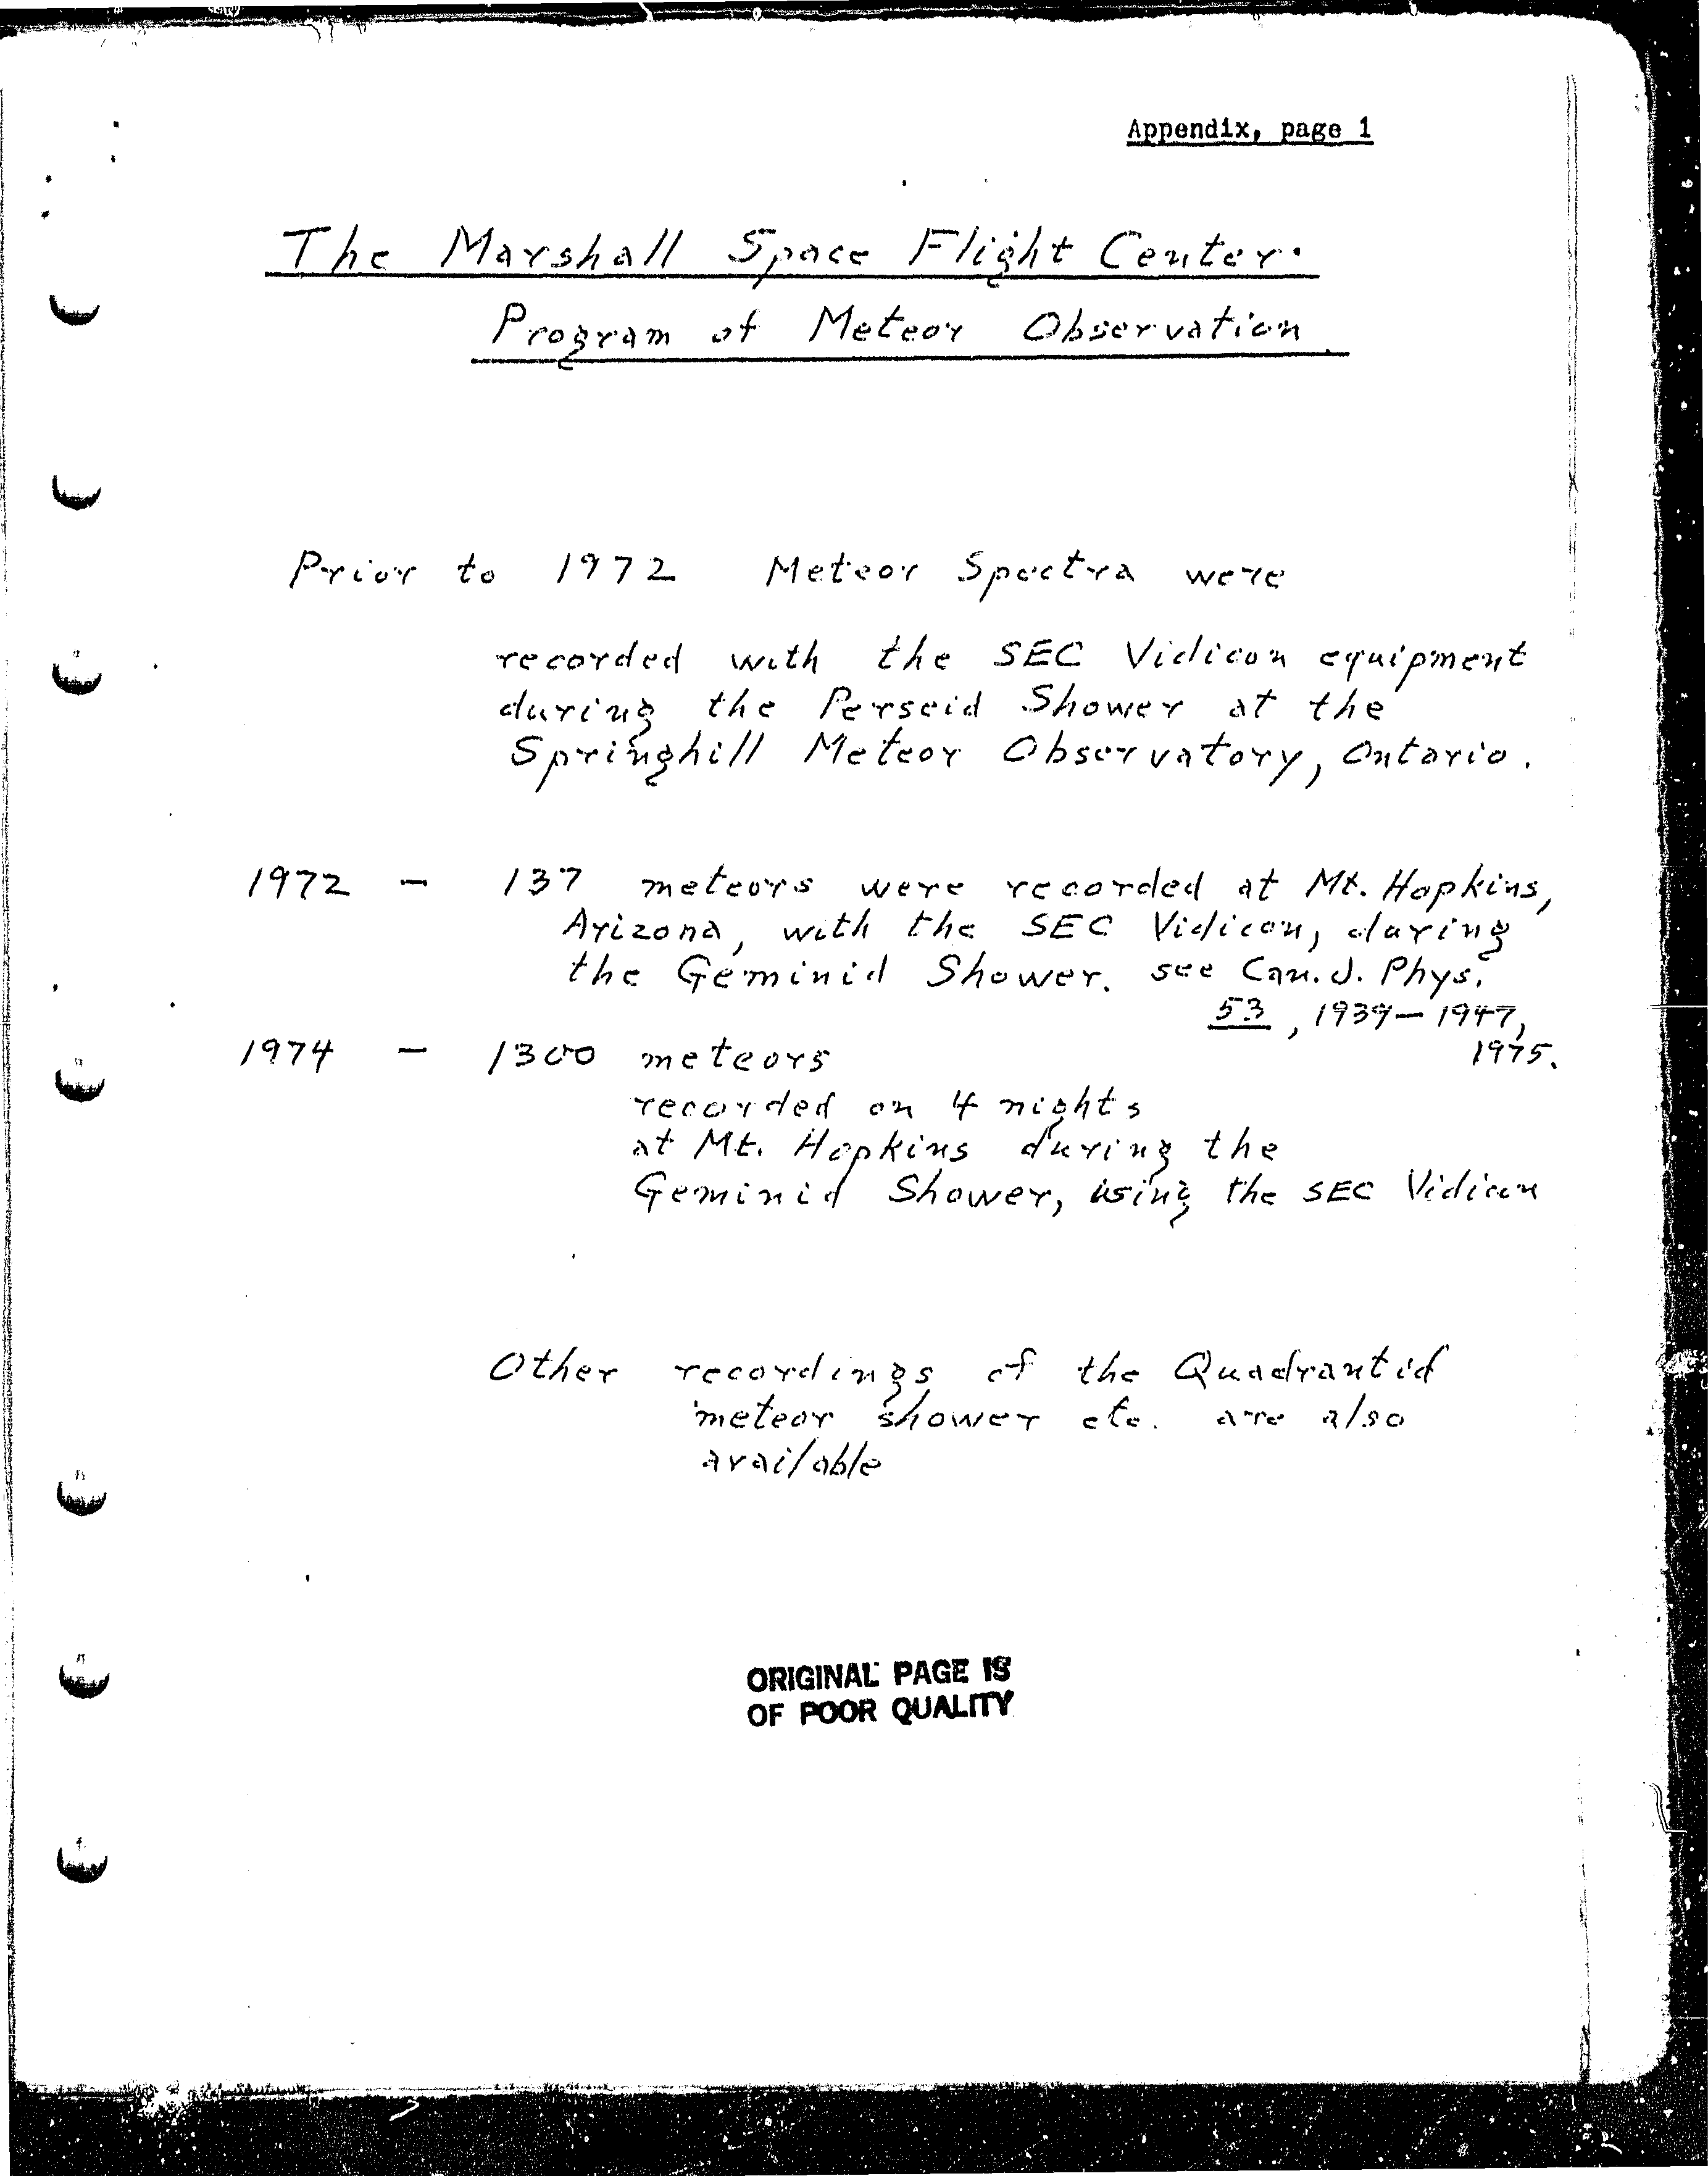 Appendix, page 1
The Marshall Space Flight Center
Program of Meteor Observation
Prior to 1972 Meteor Spectra were
recorded with the SEC Vidicon equipment
during the Perseid Shower at the
Springhill Meteor Observatory, Ontario.
1972 - 137 meteors were recorded at Mt. Hopkins,
Arizona, with the SEC Vidicon, during
the Geminid Shower. see Can. J. Phys.
53, 1939-1947,
1975.
1974 - 1300 meteors
recorded on 4 nights
at Mt. Hopkins during the
Geminid Shower, using the SEC Vidicon
Other recordings of the Quadrantid
meteor shower etc. are also
available
ORIGINAL PAGE IS
OF POOR QUALITY